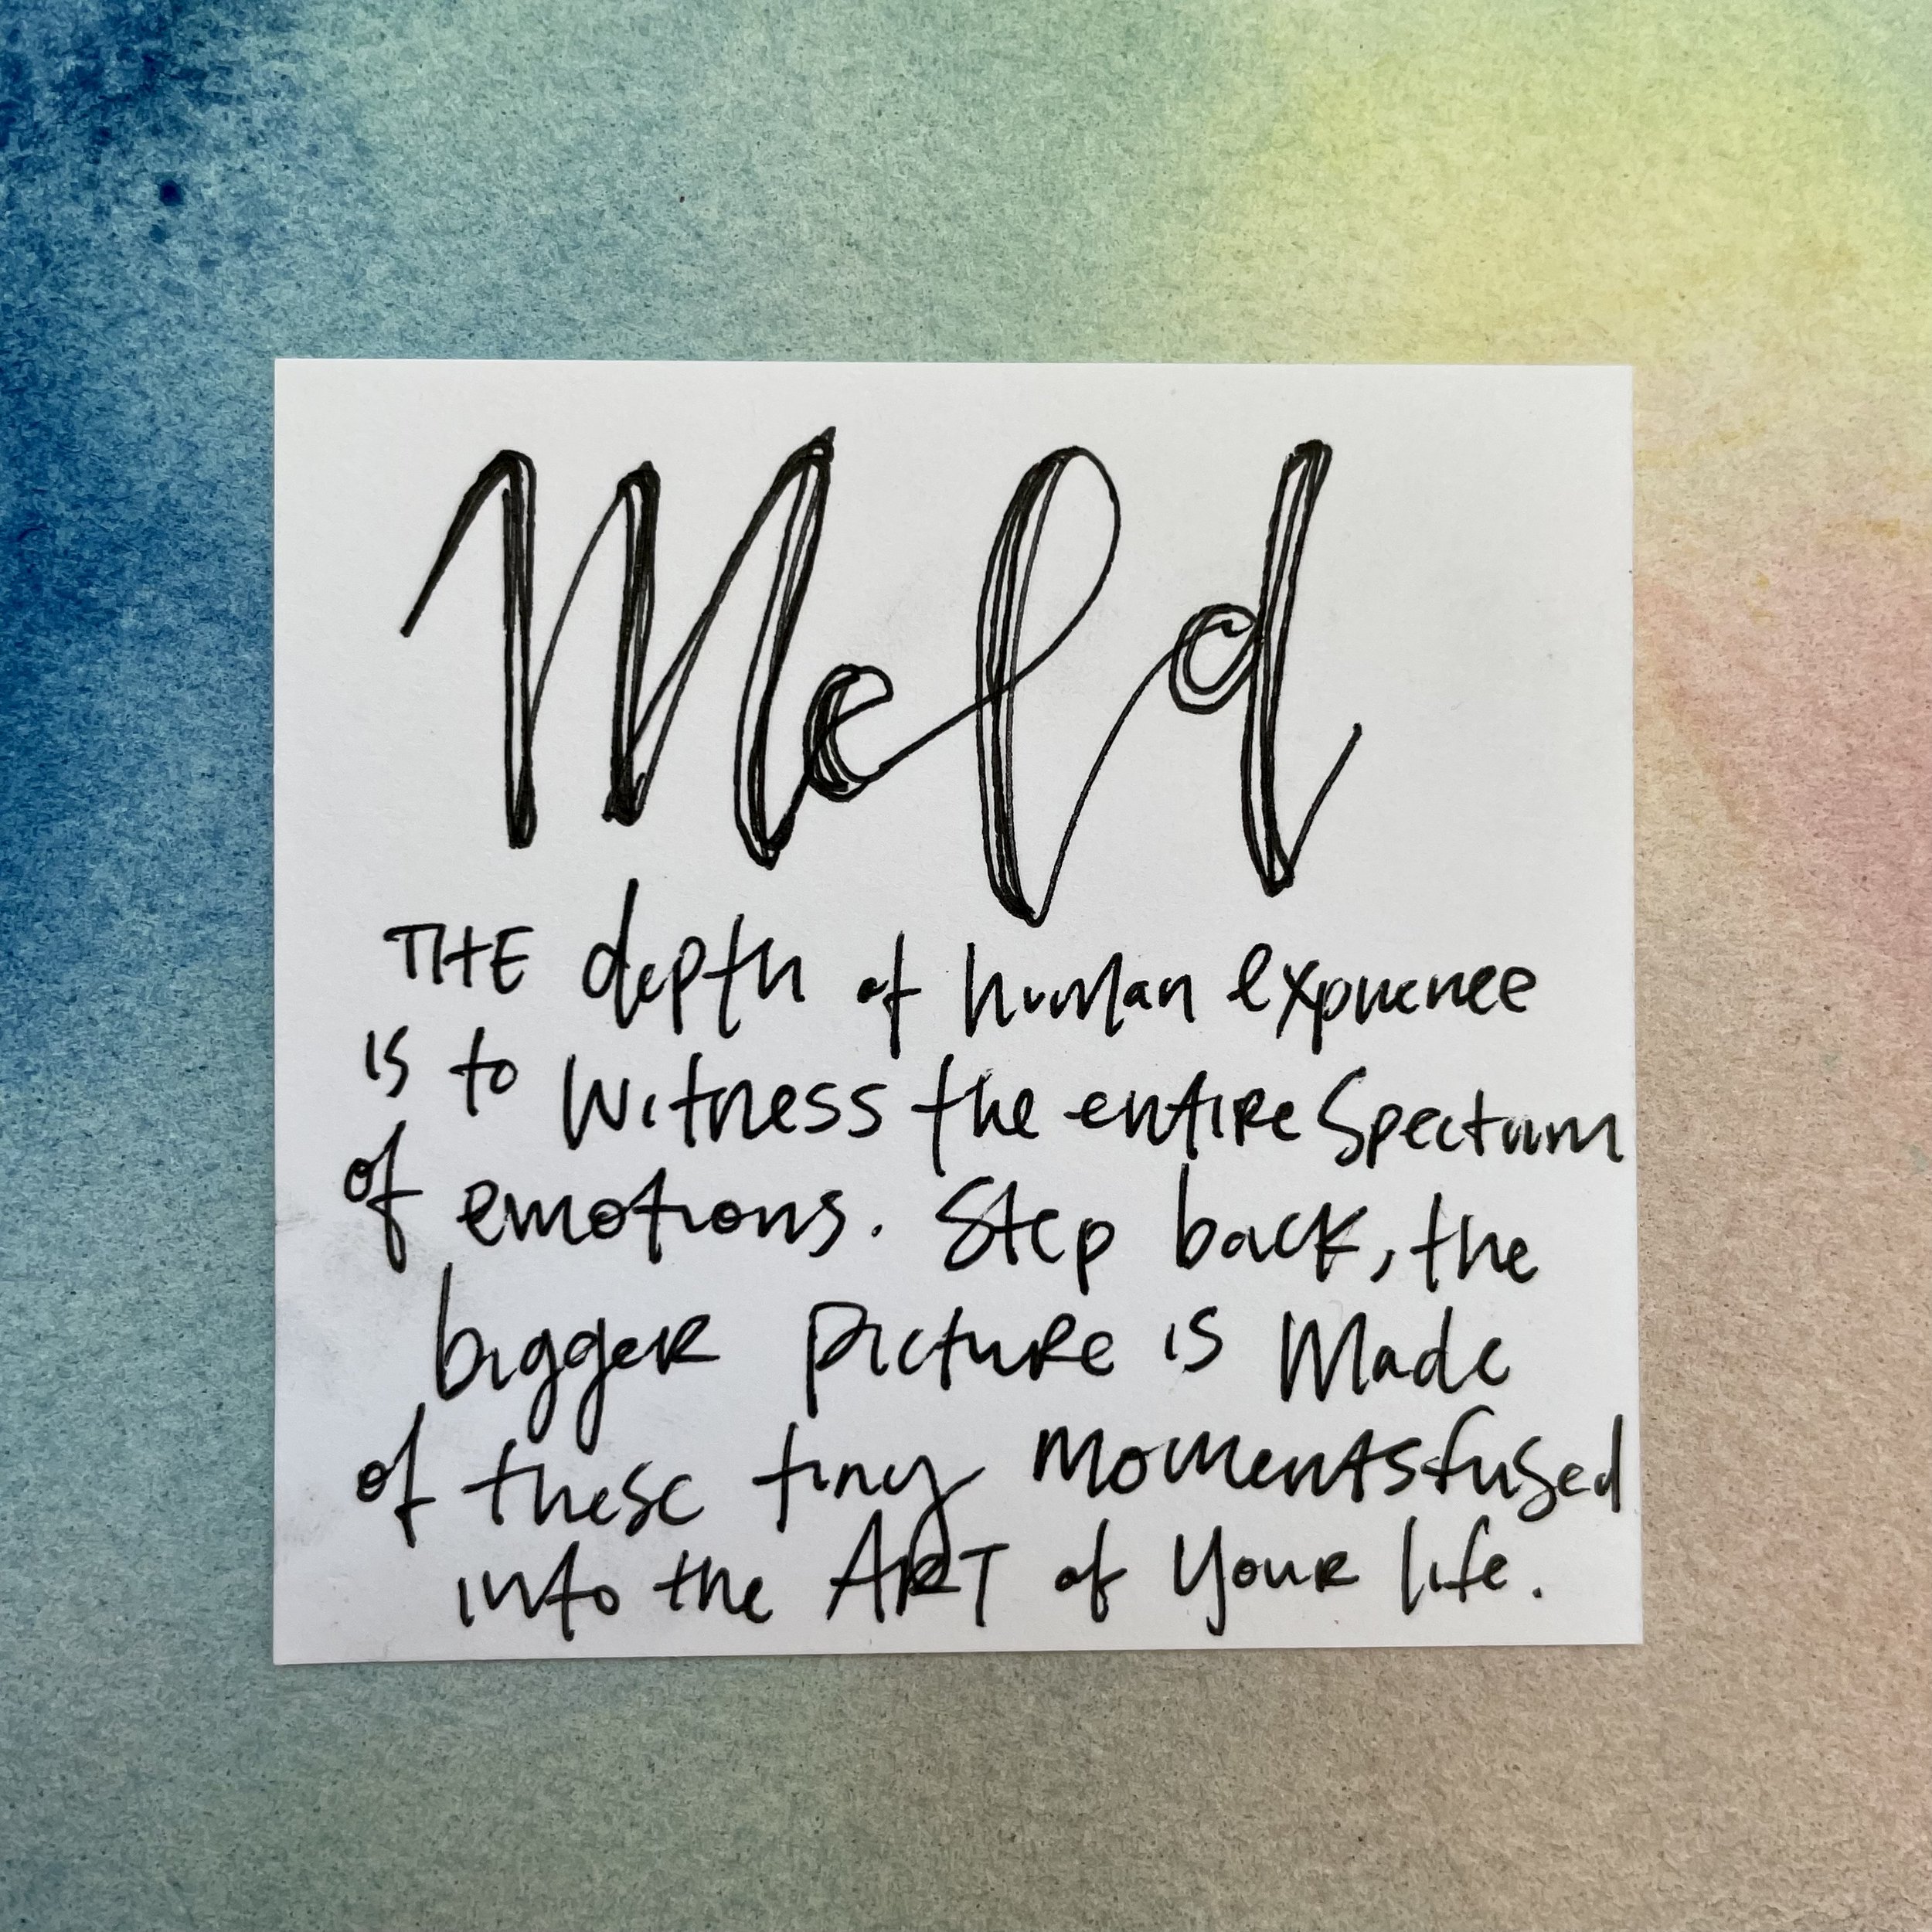 Meld
THE depth of human experience
is to Witness the entire Spectrum
of emotions. Step back, the
bigger picture is Made
of these tiny Moments fused
into the ART of Your life.